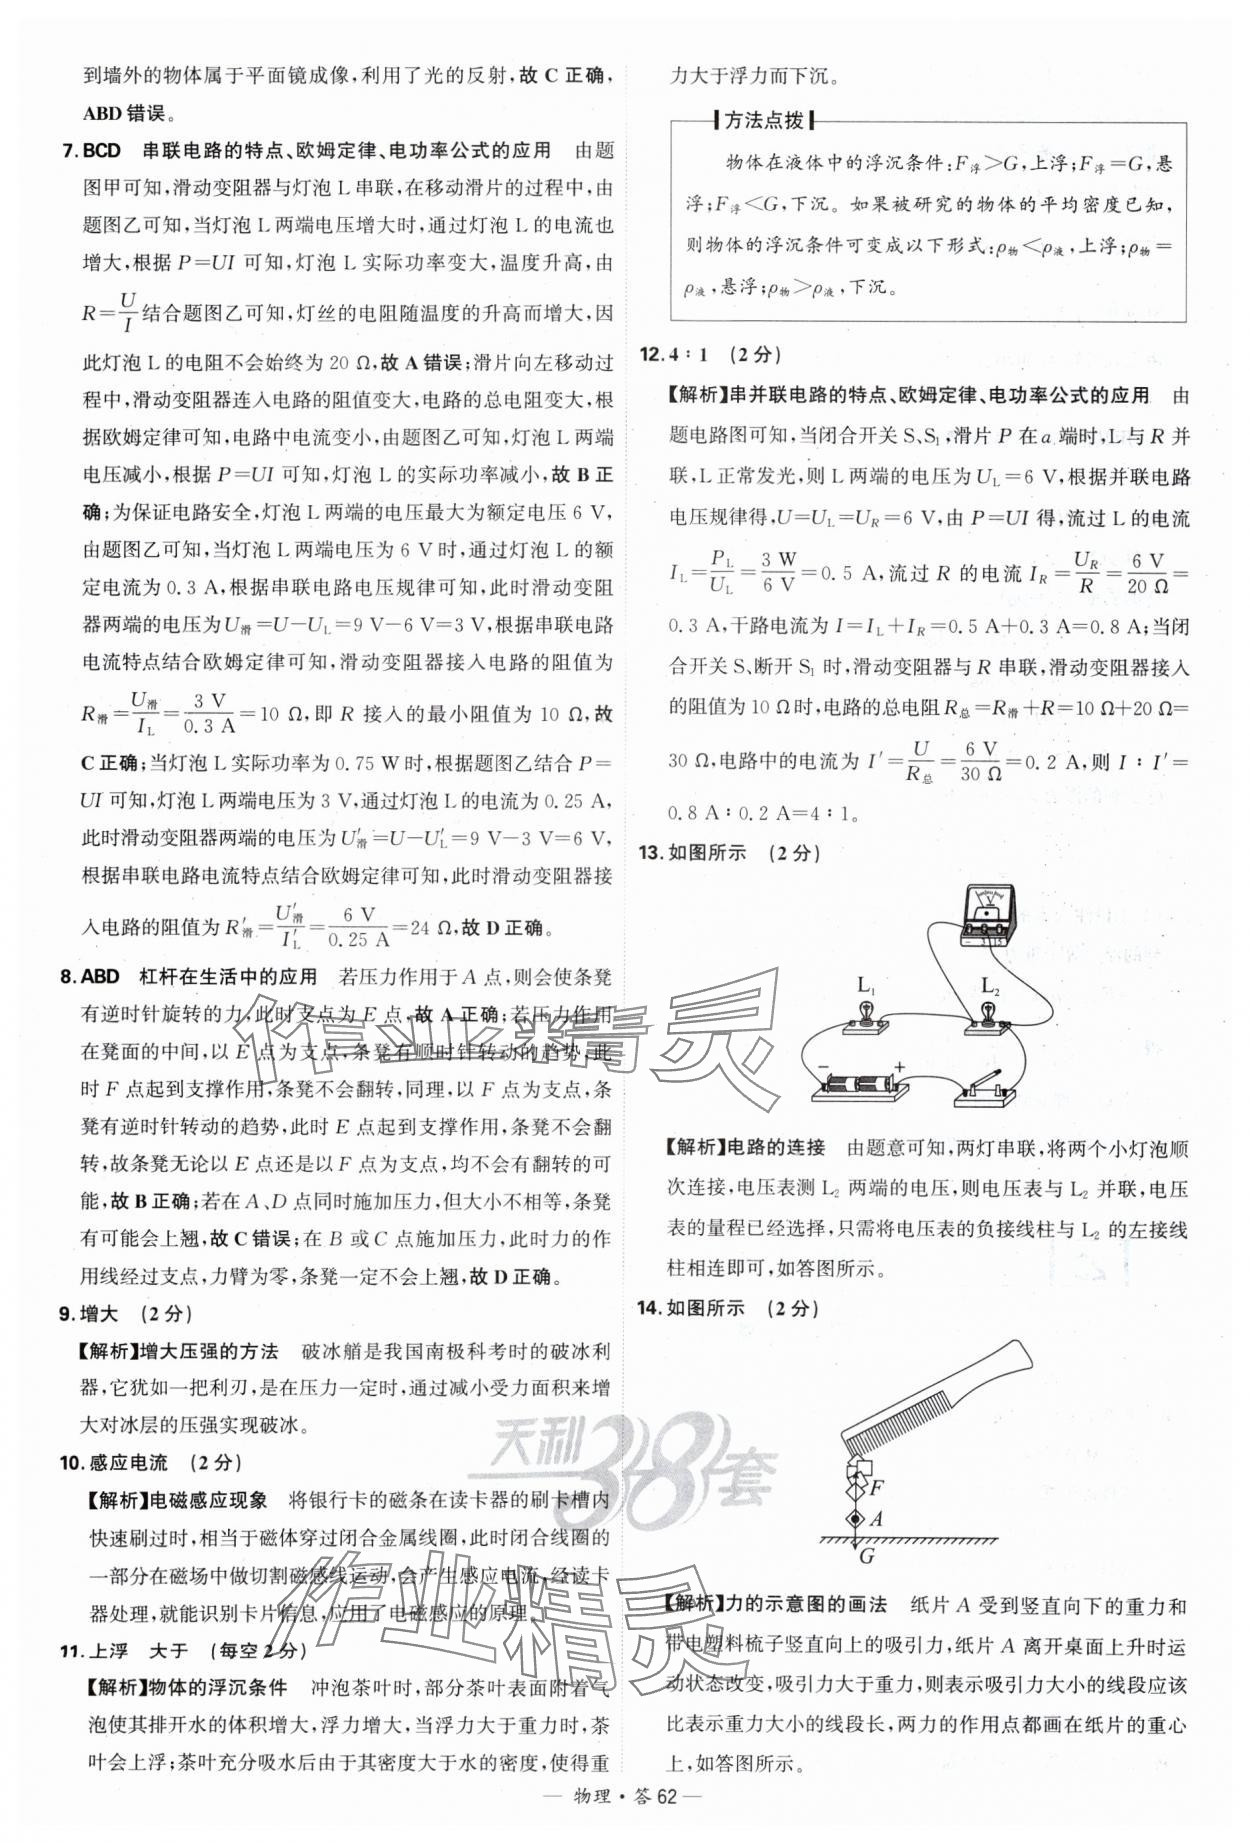 到墙外的物体属于平面镜成像,利用了光的反射,故C正确,
ABD错误。
7. BCD 串联电路的特点、欧姆定律、电功率公式的应用 由题
图甲可知,滑动变阻器与灯泡L串联,在移动滑片的过程中,由
题图乙可知,当灯泡L两端电压增大时,通过灯泡L的电流也
增大,根据P=UI可知,灯泡L实际功率变大,温度升高,由
R=U/I结合题图乙可知,灯丝的电阻随温度的升高而增大,因
此灯泡L的电阻不会始终为20 Ω,故A错误;滑片向左移动过
程中,滑动变阻器连入电路的阻值变大,电路的总电阻变大,根
据欧姆定律可知,电路中电流变小,由题图乙可知,灯泡L两端
电压减小,根据P=UI可知,灯泡L的实际功率减小,故B正
确;为保证电路安全,灯泡L两端的电压最大为额定电压6 V,
由题图乙可知,当灯泡L两端电压为6 V时,通过灯泡L的额
定电流为0.3 A,根据串联电路电压规律可知,此时滑动变阻
器两端的电压为U滑=U-UL=9 V-6 V=3 V,根据串联电路
电流特点结合欧姆定律可知,滑动变阻器接入电路的阻值为
R滑=U滑/IL=3 V/0.3 A=10 Ω,即R接入的最小阻值为10 Ω,故
C正确;当灯泡L实际功率为0.75 W时,根据题图乙结合P=
UI可知,灯泡L两端电压为3 V,通过灯泡L的电流为0.25 A,
此时滑动变阻器两端的电压为U′滑=U-U′L=9 V-3 V=6 V,
根据串联电路电流特点结合欧姆定律可知,此时滑动变阻器接
入电路的阻值为R′滑=U′滑/I′L=6 V/0.25 A=24 Ω,故D正确。
8. ABD 杠杆在生活中的应用 若压力作用于A点,则会使条凳
有逆时针旋转的力,此时支点为E点,故A正确;若压力作用
在凳面的中间,以E点为支点,条凳有顺时针转动的趋势,此
时F点起到支撑作用,条凳不会翻转,同理,以F点为支点,条
凳有逆时针转动的趋势,此时E点起到支撑作用,条凳不会翻
转,故条凳无论以E点还是以F点为支点,均不会有翻转的可
能,故B正确;若在A、D点同时施加压力,但大小不相等,条凳
有可能会上翘,故C错误;在B或C点施加压力,此时力的作
用线经过支点,力臂为零,条凳一定不会上翘,故D正确。
9. 增大 (2分)
【解析】增大压强的方法 破冰艏是我国南极科考时的破冰利
器,它犹如一把利刃,是在压力一定时,通过减小受力面积来增
大对冰层的压强实现破冰。
10. 感应电流 (2分)
【解析】电磁感应现象 将银行卡的磁条在读卡器的刷卡槽内
快速刷过时,相当于磁体穿过闭合金属线圈,此时闭合线圈的
一部分在磁场中做切割磁感线运动,会产生感应电流,经读卡
器处理,就能识别卡片信息,应用了电磁感应的原理。
11. 上浮 大于 (每空2分)
【解析】物体的浮沉条件 冲泡茶叶时,部分茶叶表面附着气
泡使其排开水的体积增大,浮力增大,当浮力大于重力时,茶
叶会上浮;茶叶充分吸水后由于其密度大于水的密度,使得重
力大于浮力而下沉。
方法点拨
物体在液体中的浮沉条件:F浮>G,上浮;F浮=G,悬
浮;F浮<G,下沉。如果被研究的物体的平均密度已知,
则物体的浮沉条件可变成以下形式:ρ物<ρ液,上浮;ρ物=
ρ液,悬浮;ρ物>ρ液,下沉。
12. 4∶1 (2分)
【解析】串并联电路的特点、欧姆定律、电功率公式的应用 由
题电路图可知,当闭合开关S、S1,滑片P在a端时,L与R并
联,L正常发光,则L两端的电压为UL=6 V,根据并联电路
电压规律得,U=UL=UR=6 V,由P=UI得,流过L的电流
IL=PL/UL=3 W/6 V=0.5 A,流过R的电流IR=UR/R=6 V/20 Ω=
0.3 A,干路电流为I=IL+IR=0.5 A+0.3 A=0.8 A;当闭
合开关S、断开S1时,滑动变阻器与R串联,滑动变阻器接入
的阻值为10 Ω时,电路的总电阻R总=R滑+R=10 Ω+20 Ω=
30 Ω,电路中的电流为I′=U/R总=6 V/30 Ω=0.2 A,则I∶I′=
0.8 A∶0.2 A=4∶1。
13. 如图所示 (2分)
V
- 3 15
L1 L2
- +
【解析】电路的连接 由题意可知,两灯串联,将两个小灯泡顺
次连接,电压表测L2两端的电压,则电压表与L2并联,电压
表的量程已经选择,只需将电压表的负接线柱与L2的左接线
柱相连即可,如答图所示。
14. 如图所示 (2分)
F
A
G
【解析】力的示意图的画法 纸片A受到竖直向下的重力和
带电塑料梳子竖直向上的吸引力,纸片A离开桌面上升时运
动状态改变,吸引力大于重力,则表示吸引力大小的线段应该
比表示重力大小的线段长,两力的作用点都画在纸片的重心
上,如答图所示。
作业精灵
天利38套
作业精灵
— 物理·答62 —